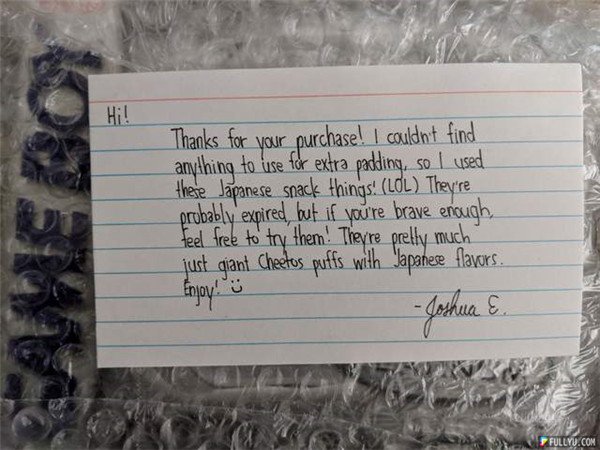 Hi!
Thanks for your purchase! I couldn't find
anything to use for extra padding, so I used
these Japanese snack things! (LOL) They're
probably expired, but if you're brave enough,
feel free to try them! They're pretty much
just giant Cheetos puffs with Japanese flavors.
Enjoy! :)
- Joshua E.
FULLYU.COM